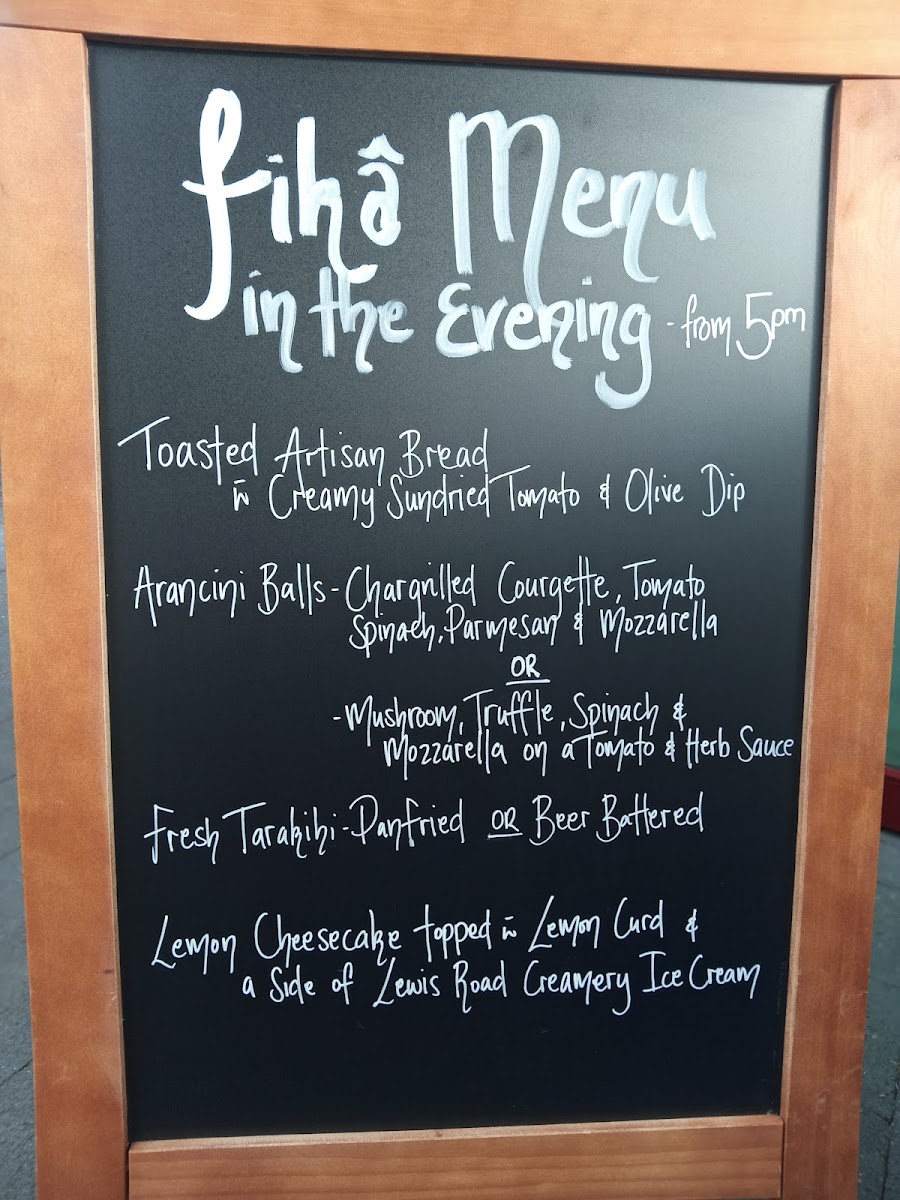 fikâ Menu
in the Evening - from 5pm
Toasted Artisan Bread
w̄ Creamy Sundried Tomato & Olive Dip
Arancini Balls - Chargrilled Courgette, Tomato
Spinach, Parmesan & Mozzarella
OR
- Mushroom, Truffle, Spinach &
Mozzarella on a Tomato & Herb Sauce
Fresh Tarakihi - Panfried OR Beer Battered
Lemon Cheesecake topped w̄ Lemon Curd &
a Side of Lewis Road Creamery Ice Cream